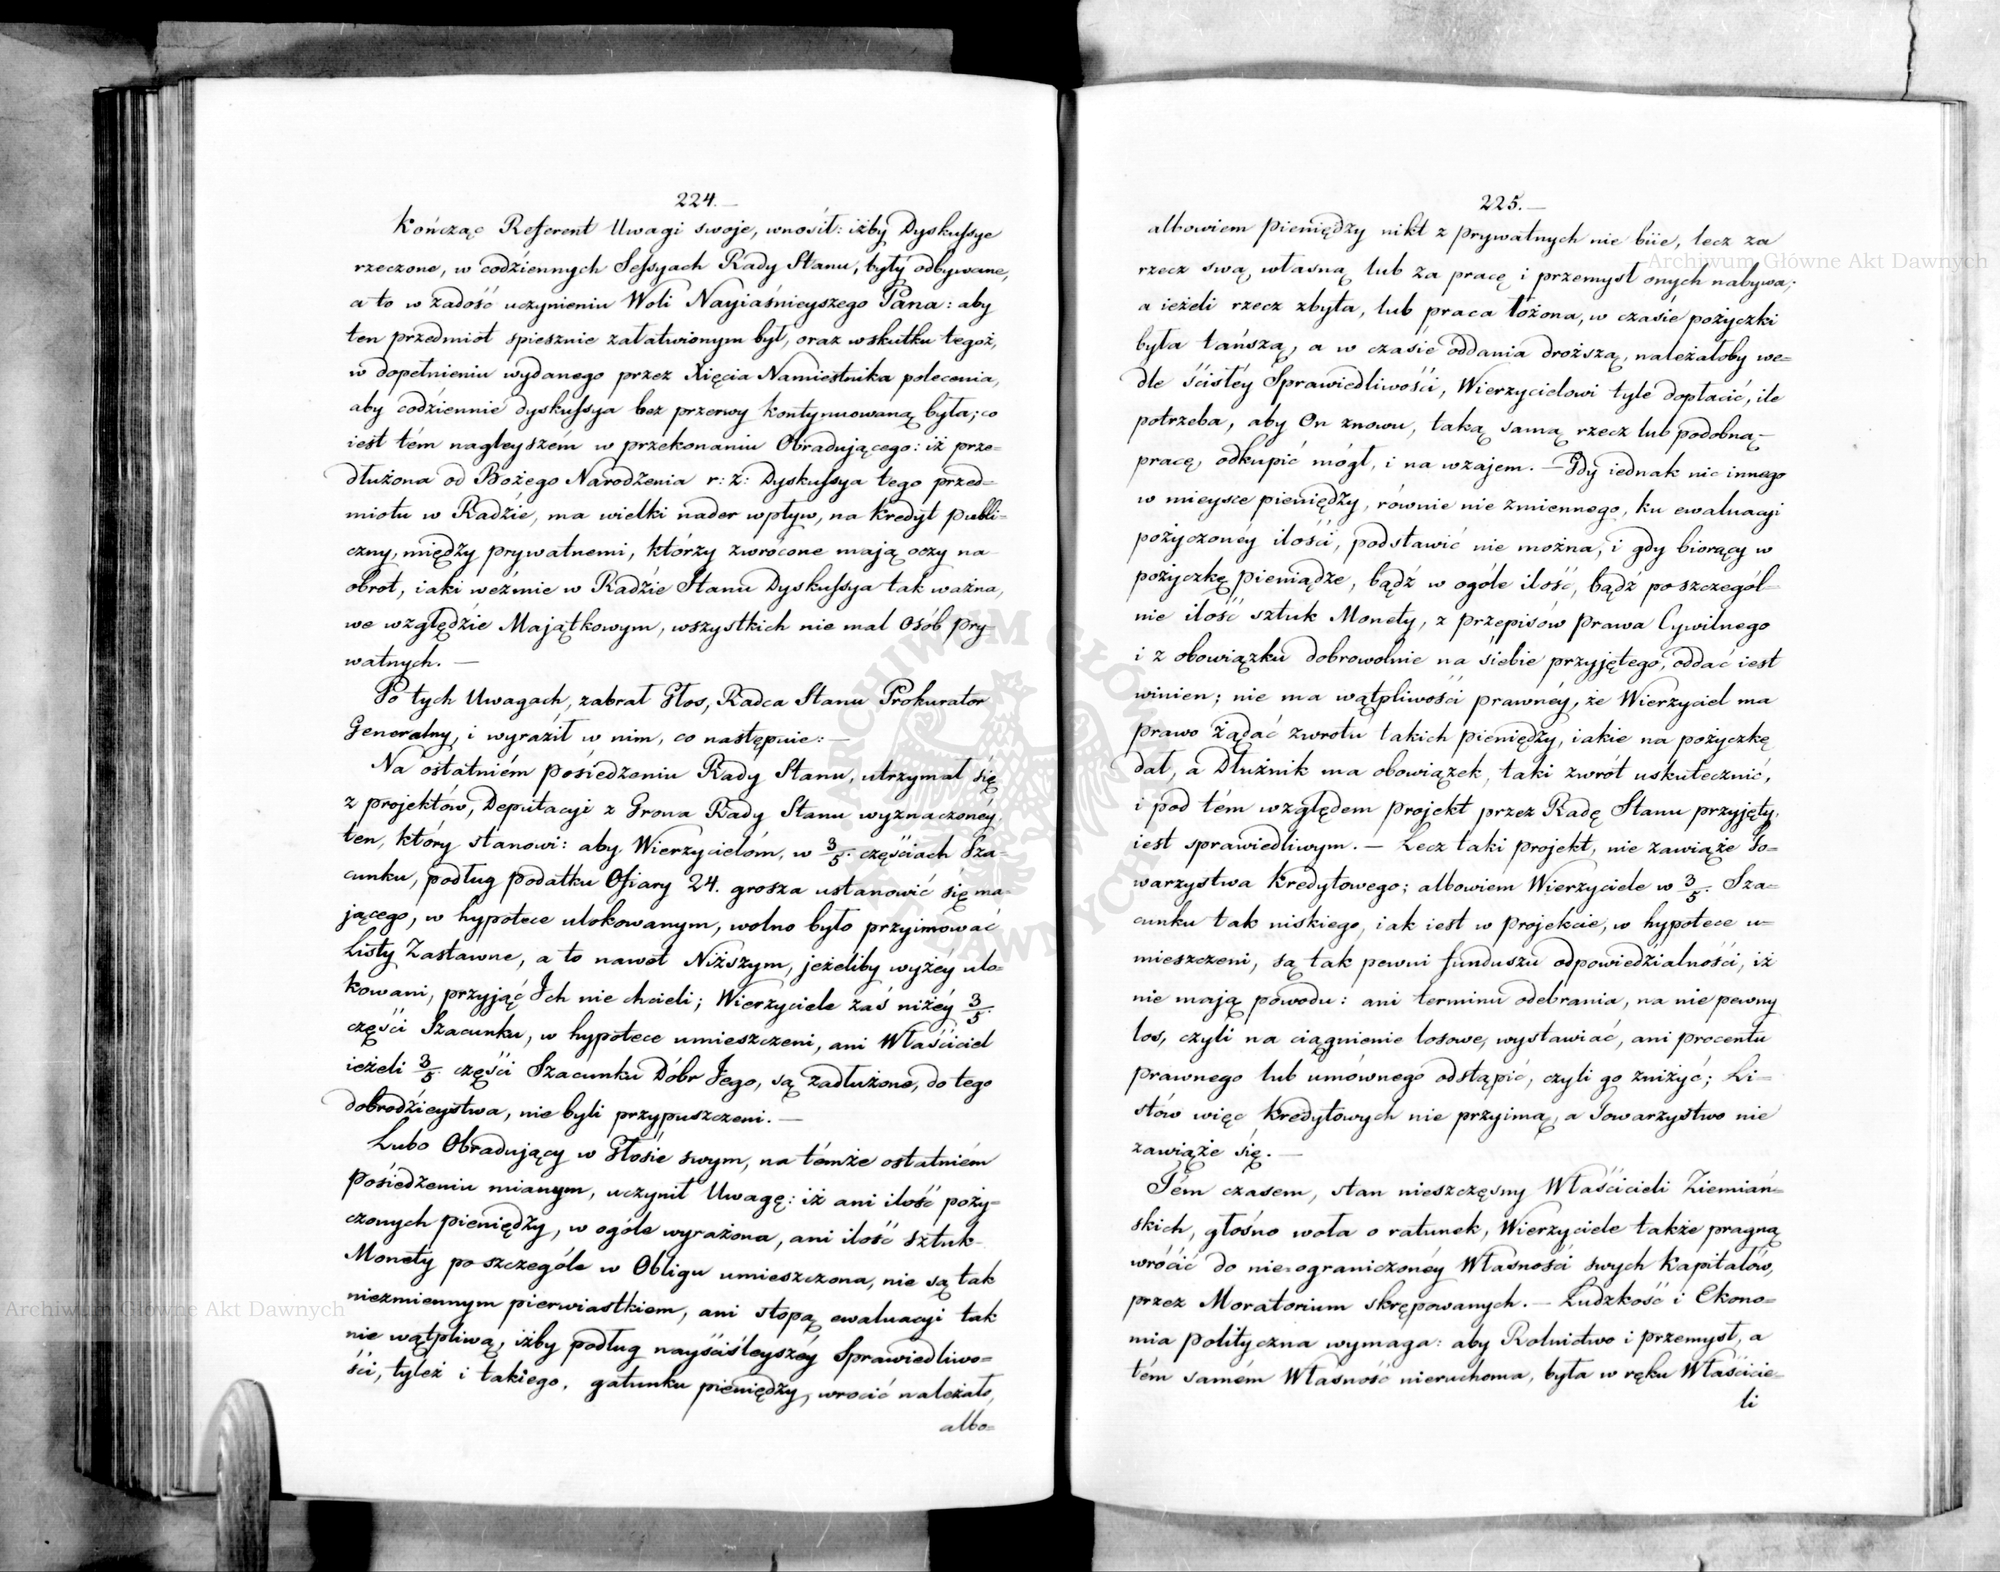 224.—
Kończąc Referent Uwagi swoje, wnosił: iżby Dyskussye
rzeczone, w codziennych Sessyach Rady Stanu, były odbywane,
a to w zadość uczynieniu Woli Nayiaśnieyszego Pana: aby
ten przedmiot spiesznie załatwionym był, oraz w skutku tegoż,
w dopełnieniu wydanego przez Xięcia Namiestnika polecenia,
aby codziennie dyskussya bez przerwy kontynuowaną była; co
iest tém nagleyszém w przekonaniu Obradującego: iż prze=
dłużona od Bożego Narodzenia r: z: Dyskussya tego przed=
miotu w Radzie, ma wielki nader wpływ, na kredyt publi=
czny, między prywatnemi, którzy zwrocone mają oczy na
obrot, iaki weźmie w Radzie Stanu Dyskussya tak ważna,
we względzie Majątkowym, wszystkich nie mal Osób pry=
watnych. —
Po tych Uwagach, zabrał Głos, Radca Stanu Prokurator
Generalny, i wyraził w nim, co następuie: —
Na ostatniém posiedzeniu Rady Stanu, utrzymał się
z projektów, Deputacyi z Grona Rady Stanu wyznaczonéy,
ten, który stanowi: aby Wierzycielóm, w 3/5. częściach Sza=
cunku, podług podatku Ofiary 24. grosza ustanowić się ma=
jącego, w hypotece ulokowanym, wolno było przyimować
Listy Zastawne, a to nawet Niższym, jeżeliby wyżéy ulo=
kowani, przyjąć Ich nie chcieli; Wierzyciele zaś niżéy 3/5.
części Szacunku, w hypotece umieszczeni, ani Właściciel
ieżeli 3/5. części Szacunku Dóbr Jego, są zadłużone, do tego
dobrodzieystwa, nie byli przypuszczeni. —
Lubo Obradujący w Głosie swym, na témże ostatniém
posiedzeniu mianym, uczynił Uwagę: iż ani ilość poży=
czonych pieniędzy, w ogóle wyrażona, ani ilość sztuk
Monety po szczególe w Obligu umieszczona, nie są tak
niezmiennym pierwiastkiem, ani stopą ewaluacyi tak
nie wątpliwą, iżby podług nayściśleyszéy Sprawiedliwo=
ści, tyleż i takiego, gatunku pieniędzy, wrocić należało,
albo=
225.—
albowiem pieniędzy nikt z prywatnych nie biie, lecz za
rzecz swą własną lub za pracę i przemysł onych nabywa;
a ieżeli rzecz zbyta, lub praca łożona, w czasie pożyczki
była tańszą, a w czasie oddania droższą, należałoby we=
dle ścisłéy Sprawiedliwości, Wierzycielowi tyle dopłacić, ile
potrzeba, aby On znowu, taką samą rzecz lub podobną
pracę, odkupić mógł, i na wzajem. — Gdy iednak nic innego
w mieysce pieniędzy, równie nie zmiennego, ku ewaluacyi
pożyczonéy ilości, podstawić nie można, i gdy biorący w
pożyczkę pieniądze, bądź w ogóle ilość, bądź po szczegól=
nie ilość sztuk Monety, z przepisów prawa Cywilnego
i z obowiązku dobrowolnie na siebie przyjętego, oddać iest
winien; nie ma wątpliwości prawnéy, że Wierzyciel ma
prawo żądać zwrotu takich pieniędzy, iakie na pożyczkę
dał, a Dłużnik ma obowiązek, taki zwrót uskutecznić,
i pod tém względem projekt przez Radę Stanu przyjęty,
iest sprawiedliwym. — Lecz taki projekt, nie zawiąże To=
warzystwa Kredytowego; albowiem Wierzyciele w 3/5. Sza=
cunku tak niskiego, iak iest w projekcie, w hypotece u=
mieszczeni, są tak pewni funduszu odpowiedzialności, iż
nie mają powodu: ani terminu odebrania, na nie pewny
los, czyli na ciągnienie losowe, wystawiać, ani procentu
prawnego lub umównego odstąpić, czyli go zniżyć; Li=
stów więc Kredytowych nie przyimą, a Towarzystwo nie
zawiąże się. —
Tém czasem, stan nieszczęsny Właścicieli Ziemiań=
skich, głośno woła o ratunek, Wierzyciele także pragną
wrócić do nie=ograniczonéy Własności swych Kapitałów,
przez Moratorium skrępowanych. — Ludzkość i Ekono=
mia polityczna wymaga: aby Rolnictwo i przemysł, a
tém samém Własność nieruchoma, była w ręku Właścicie=
li
Archiwum Główne Akt Dawnych
Archiwum Główne Akt Dawnych
ARCHIWUM GŁÓWNE AKT DAWNYCH